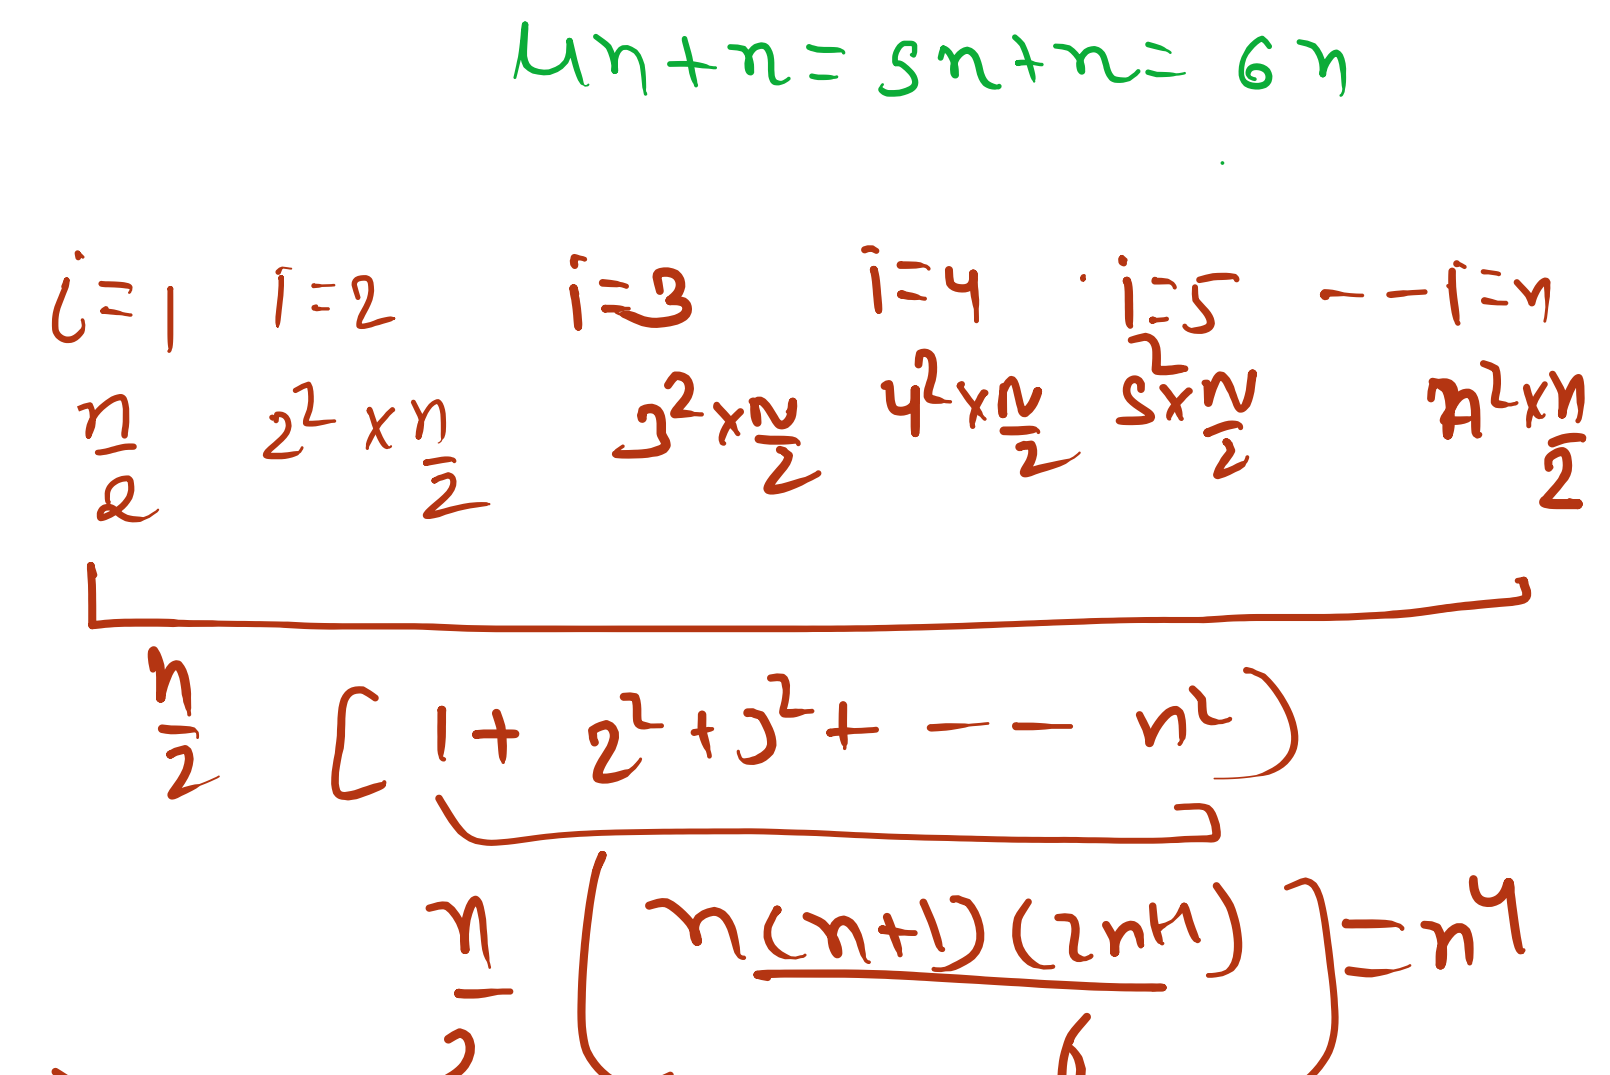 4n+n=5n+n=6n
i=1 i=2 i=3 i=4 i=5 -- i=n
n/2 2²×n/2 3²×n/2 4²×n/2 5²×n/2 n²×n/2
n/2 [1+2²+3²+-- n²)
n/2 (n(n+1)(2n+1)/6) = n⁴